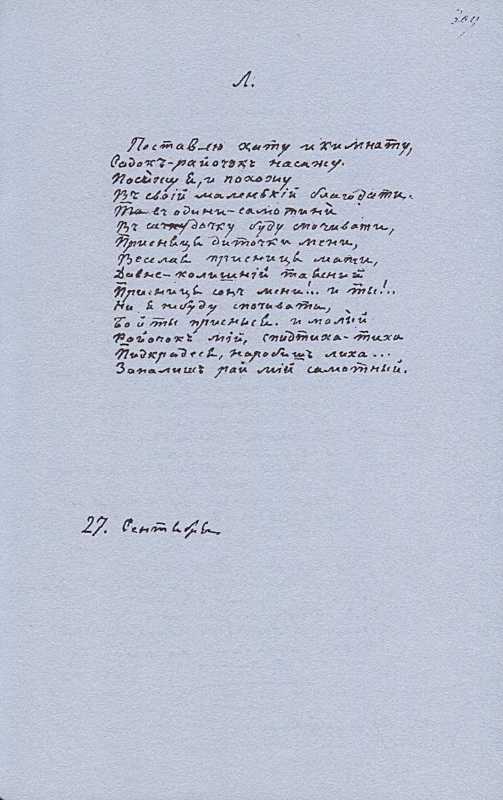 Л.
Поставлю хату и кимнату,
Садокъ-райочокъ насажу.
Посыжу я, и похожу
Въ своій маленькій благодати.
Та въ одини-самотыни
Въ садочку буду спочивати,
Присняця диточки мени,
Веселая присниця мати,
Давне-колишній та ясний
Присниця сонъ мени!.. и ты!..
Ни я небуду спочивати,
Бо й ты приснысся. и малый
Райочокъ мій, спидтиха-тиха
Пидкрадесся, наробишъ лиха...
Запалишъ рай мій самотный.
27. Сентября